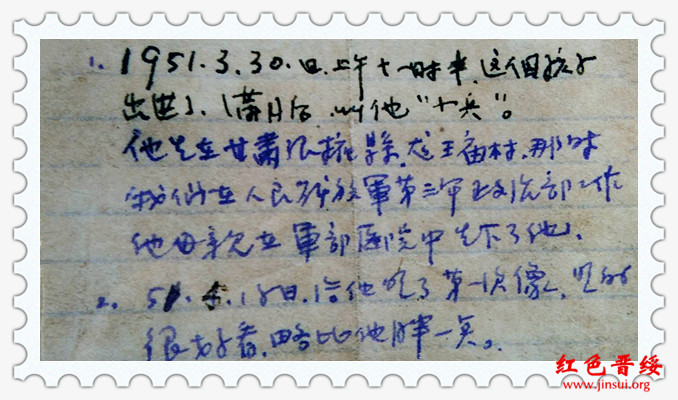 1. 1951.3.30.日.上午十一时半.这个孩子
出世了、(满月后.叫他“小兵”。
他生在甘肃张掖县.龙王庙村.那时
我们在人民解放軍第三军政治部工作
他母亲在軍部医院中生下了他.
2. 51.5.18日.给他照了第一次像.照的
很好看.略比他胖一点。
红色晋绥
www.jinsui.org